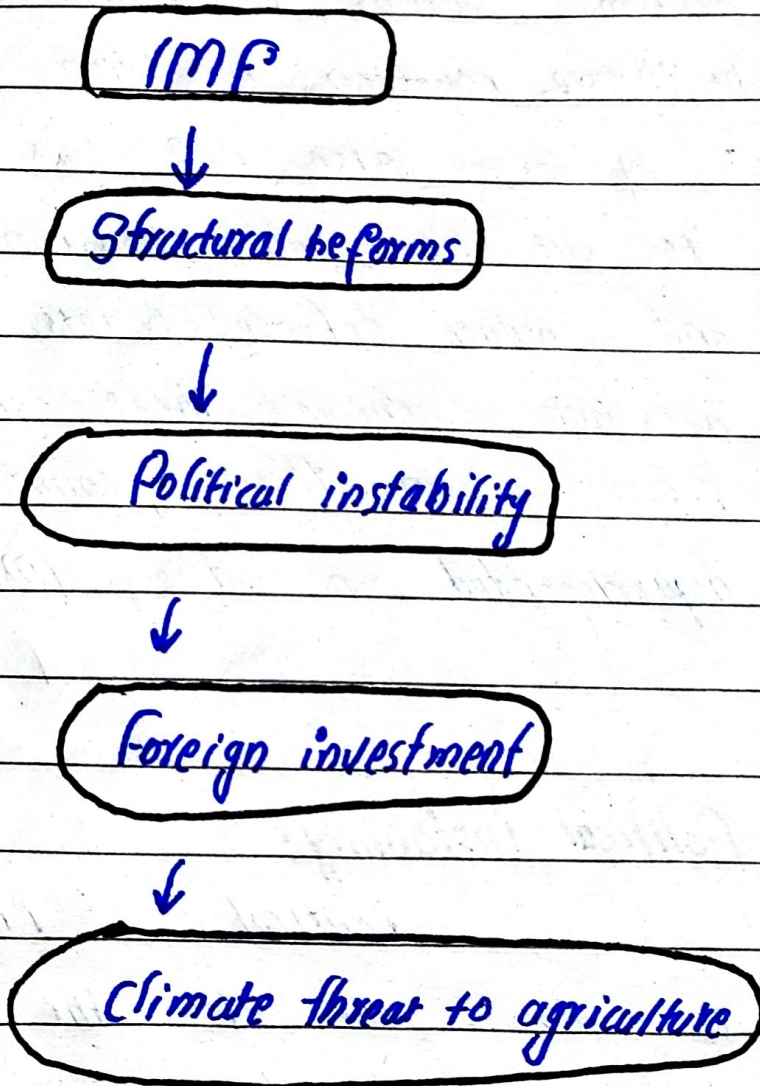 IMF
Structural Reforms
Political instability
Foreign investment
Climate threat to agriculture